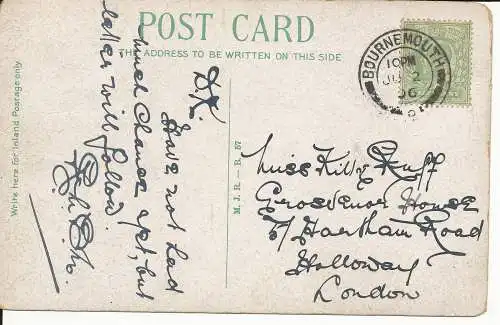 POST CARD
THE ADDRESS TO BE WRITTEN ON THIS SIDE
Write here for Inland Postage only
M. J. R. — B. 57
BOURNEMOUTH
10 PM
JU 2
06
D. K.
Have not had
much chance yet, but
letter will follow.
Miss Kitty Ruff
Grosvenor House
57 Harham Road
Holloway
London